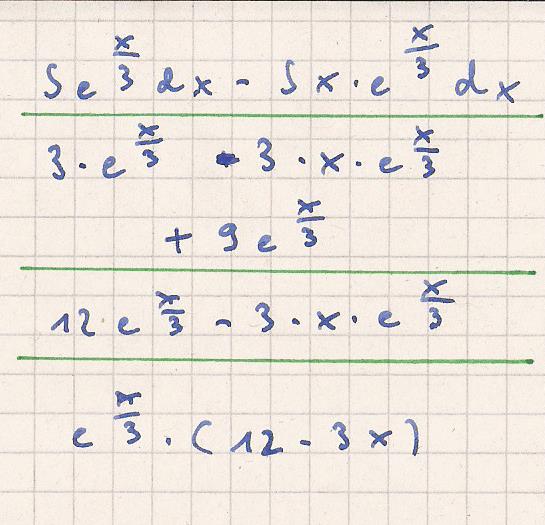 ∫e^{x/3} dx - ∫x·e^{x/3} dx
3·e^{x/3} - 3·x·e^{x/3}
+ 9e^{x/3}
12e^{x/3} - 3·x·e^{x/3}
e^{x/3}·(12-3x)